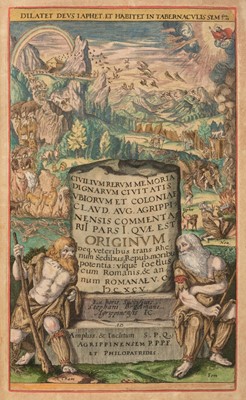 DILATET DEVS IAPHET, ET HABITET IN TABERNACVLIS SEM
CIVILIVM RERVM MEMORIA
DIGNARVM CIVITATIS
VBIORVM ET COLONIAE
CLAVD. AVG. AGRIPPI
NENSIS COMMENTA
RII PARS I. QVÆ EST
ORIGINVM
Deq. veteribus trans Rhe
num Sedibus, Repub. moribus
potentia: usque foedus
cum Romanis, & an
num ROMANÆ V. C.
AD
Ampliss. & Inclitum S. P. Q.
AGRIPPINENSEM P.P.P.P.
ET PHILOPATRIDES
Cham